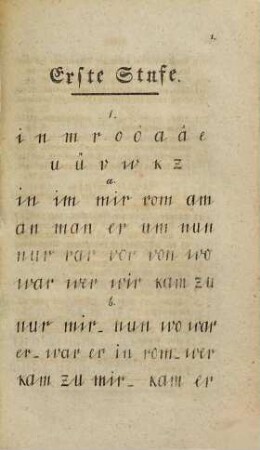 1.
Erſte Stufe.
1.
i n m r o ö a ä e
u ü v w k z
a.
in im mir rom am
an man er um nun
nur rar vor von wo
war wer wir kam zu
b.
nur mir_ nun wo war
er_ war er in rom_ wer
kam zu mir_ kam er